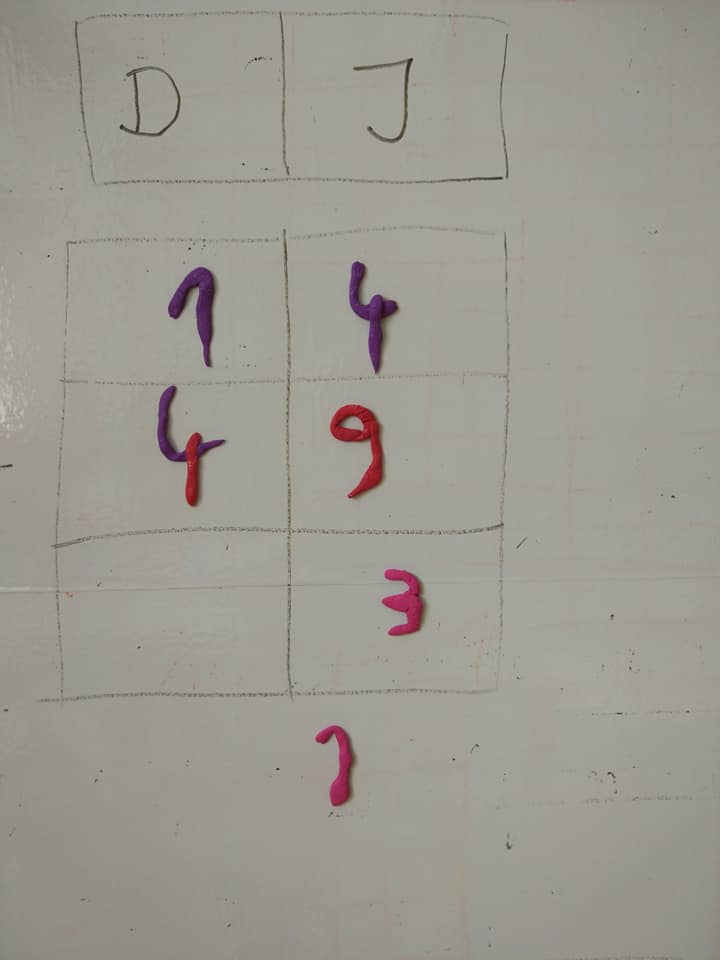 D J
1 4
4 9
3
1